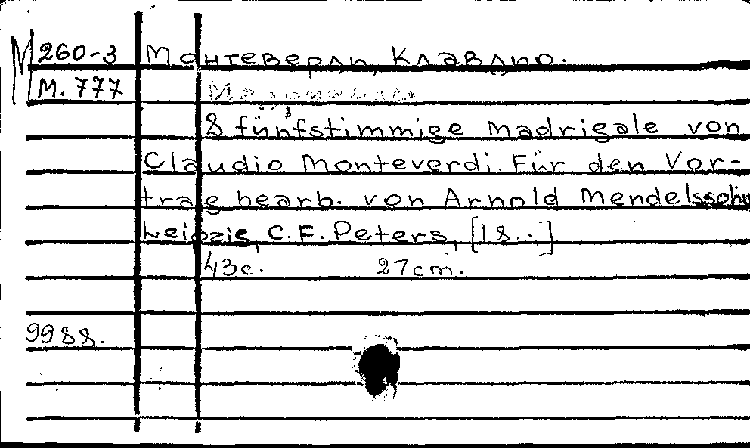 М 260-3 Монтеверди, Клавдио.
М. 777
8 fünfstimmige Madrigale von
Claudio Monteverdi. Für den Vor-
trag bearb. von Arnold Mendelssohn
Leipzig, C.F. Peters, [18..]
43с. 27cm.
9988.